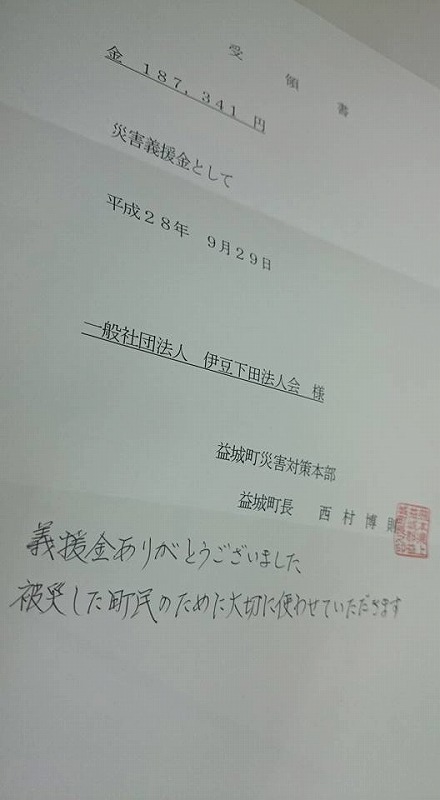 受領書
金 187,341 円
災害義援金として
平成28年 9月29日
一般社団法人 伊豆下田法人会 様
益城町災害対策本部
益城町長 西村博則
義援金ありがとうございました
被災した町民のために大切に使わせていただきます